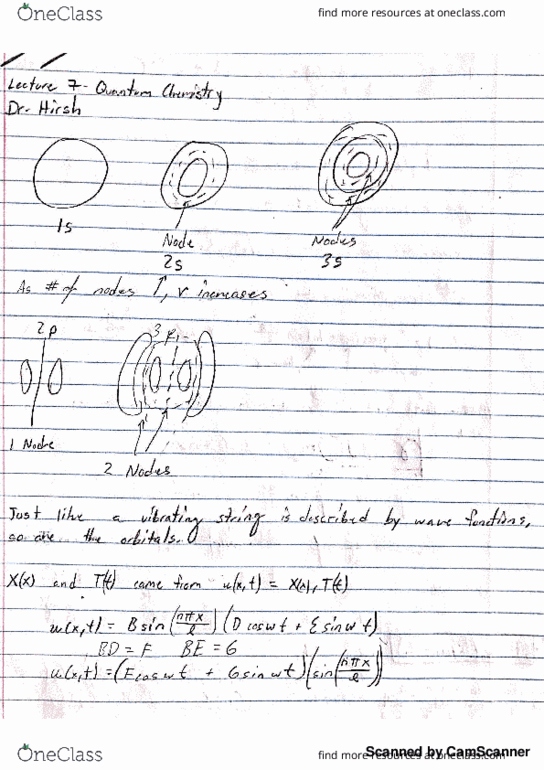 OneClass
find more resources at oneclass.com
Lecture 7- Quantum Chemistry
Dr. Hirsh
1s
Node
2s
Nodes
3s
As # of nodes ↑, r increases
2p
3p
1 Node
2 Nodes
Just like a vibrating string is described by wave functions,
so are the orbitals.
X(x) and T(t) came from u(x,t) = X(x), T(t)
u(x,t) = B sin (nπx/l) (D cos wt + E sin wt)
BD = F BE = G
u(x,t) = (F cos wt + G sin wt) (sin (nπx/l))
OneClass
find more resources at oneclass.com
Scanned by CamScanner